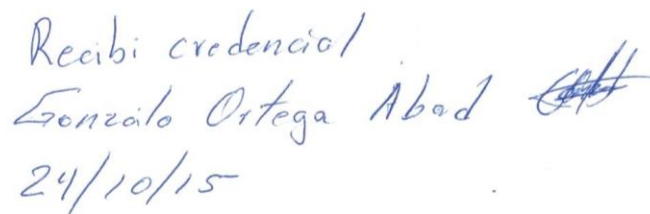 Recibi credencial
Gonzálo Ortega Abad
24/10/15